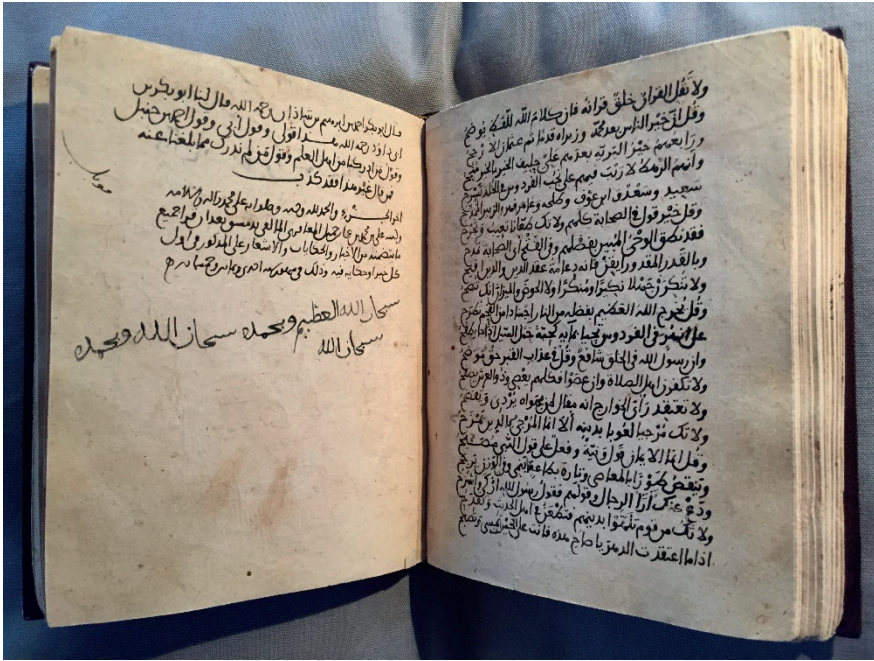 ولا تَقُل القرآن خلق قرانه فان كلام الله للفظ يوضح
وقل ان خير الناس بعد محمد وزيراه قدما ثم عثمان الارجح
ورابعهم خير البرية بعدهم علي حليف الخير بالخير منجح
وانهم الرهط لا ريب فيهم على نجب الفردوس في الخلد تسرح
سعيد وسعد وابن عوف وطلحة وعامر فهر والزبير الممدح
وقل خير قول في الصحابة كلهم ولا تك طعانا تعيب وتجرح
فقد نطق الوحي المبين بفضلهم وفي الفتح آي في الصحابة تمدح
وبالقدر المقدور ايقن فانه دعامة عقد الدين والدين افيح
ولا تنكرن جهلا نكيرا ومنكرا ولا الحوض والميزان انك تنصح
وقل يخرج الله العظيم بفضله من النار اجسادا من الفحم تطرح
على النهر في الفردوس تحيا بمايه كحبة حمل السيل اذ جاء يطفح
وان رسول الله في الخلق شافع وقل في عذاب القبر حق موضح
ولا تكفرن اهل الصلاة وان عصوا فكلهم يعصي وذو العرش يصفح
ولا تعتقد راي الخوارج انه مقال لمن يهواه يردي ويفضح
ولا تك مرجيا لعوبا بدينه ألا انما المرجي بالدين يمزح
وقل انما الايمان قول ونية وفعل على قول النبي مصرح
وينقص طورا بالمعاصي وتارة بطاعته ينمي وفي الوزن يرجح
ودع عنك آرا الرجال وقولهم فقول رسول الله ازكى واشرح
ولا تك من قوم تلهوا بدينهم فتطعن في اهل الحديث وتقدح
اذا ما اعتقدت الدهر يا صاح هذه فانت على خير تمسي وتصبح
قال ابو بكر احمد بن ابرهيم بن شاذان رحمه الله قال لنا ابو بكر بن
ابي داود رحمه الله هذا قولي وقول ابي وقول احمد بن حنبل
وقول من ادركنا من اهل العلم وقول من لم ندرك ممن بلغنا عنه
فمن قال غير هذا فقد كذب
اخر الجزء والحمد لله وحده وصلواته على محمد واله وسلامه
علي بن محمد بن علي بن جميل المعافري المالقي بدمشق بعد ان قرا جميع
ما يتضمنه من الاخبار والحكايات والاشعار على المذكور في اول
كل خبر او حكاية فيه وذلك في سنة احدى وثمانين وخمسمائة
سبحان الله العظيم وبحمده سبحان الله وبحمده
سبحان الله